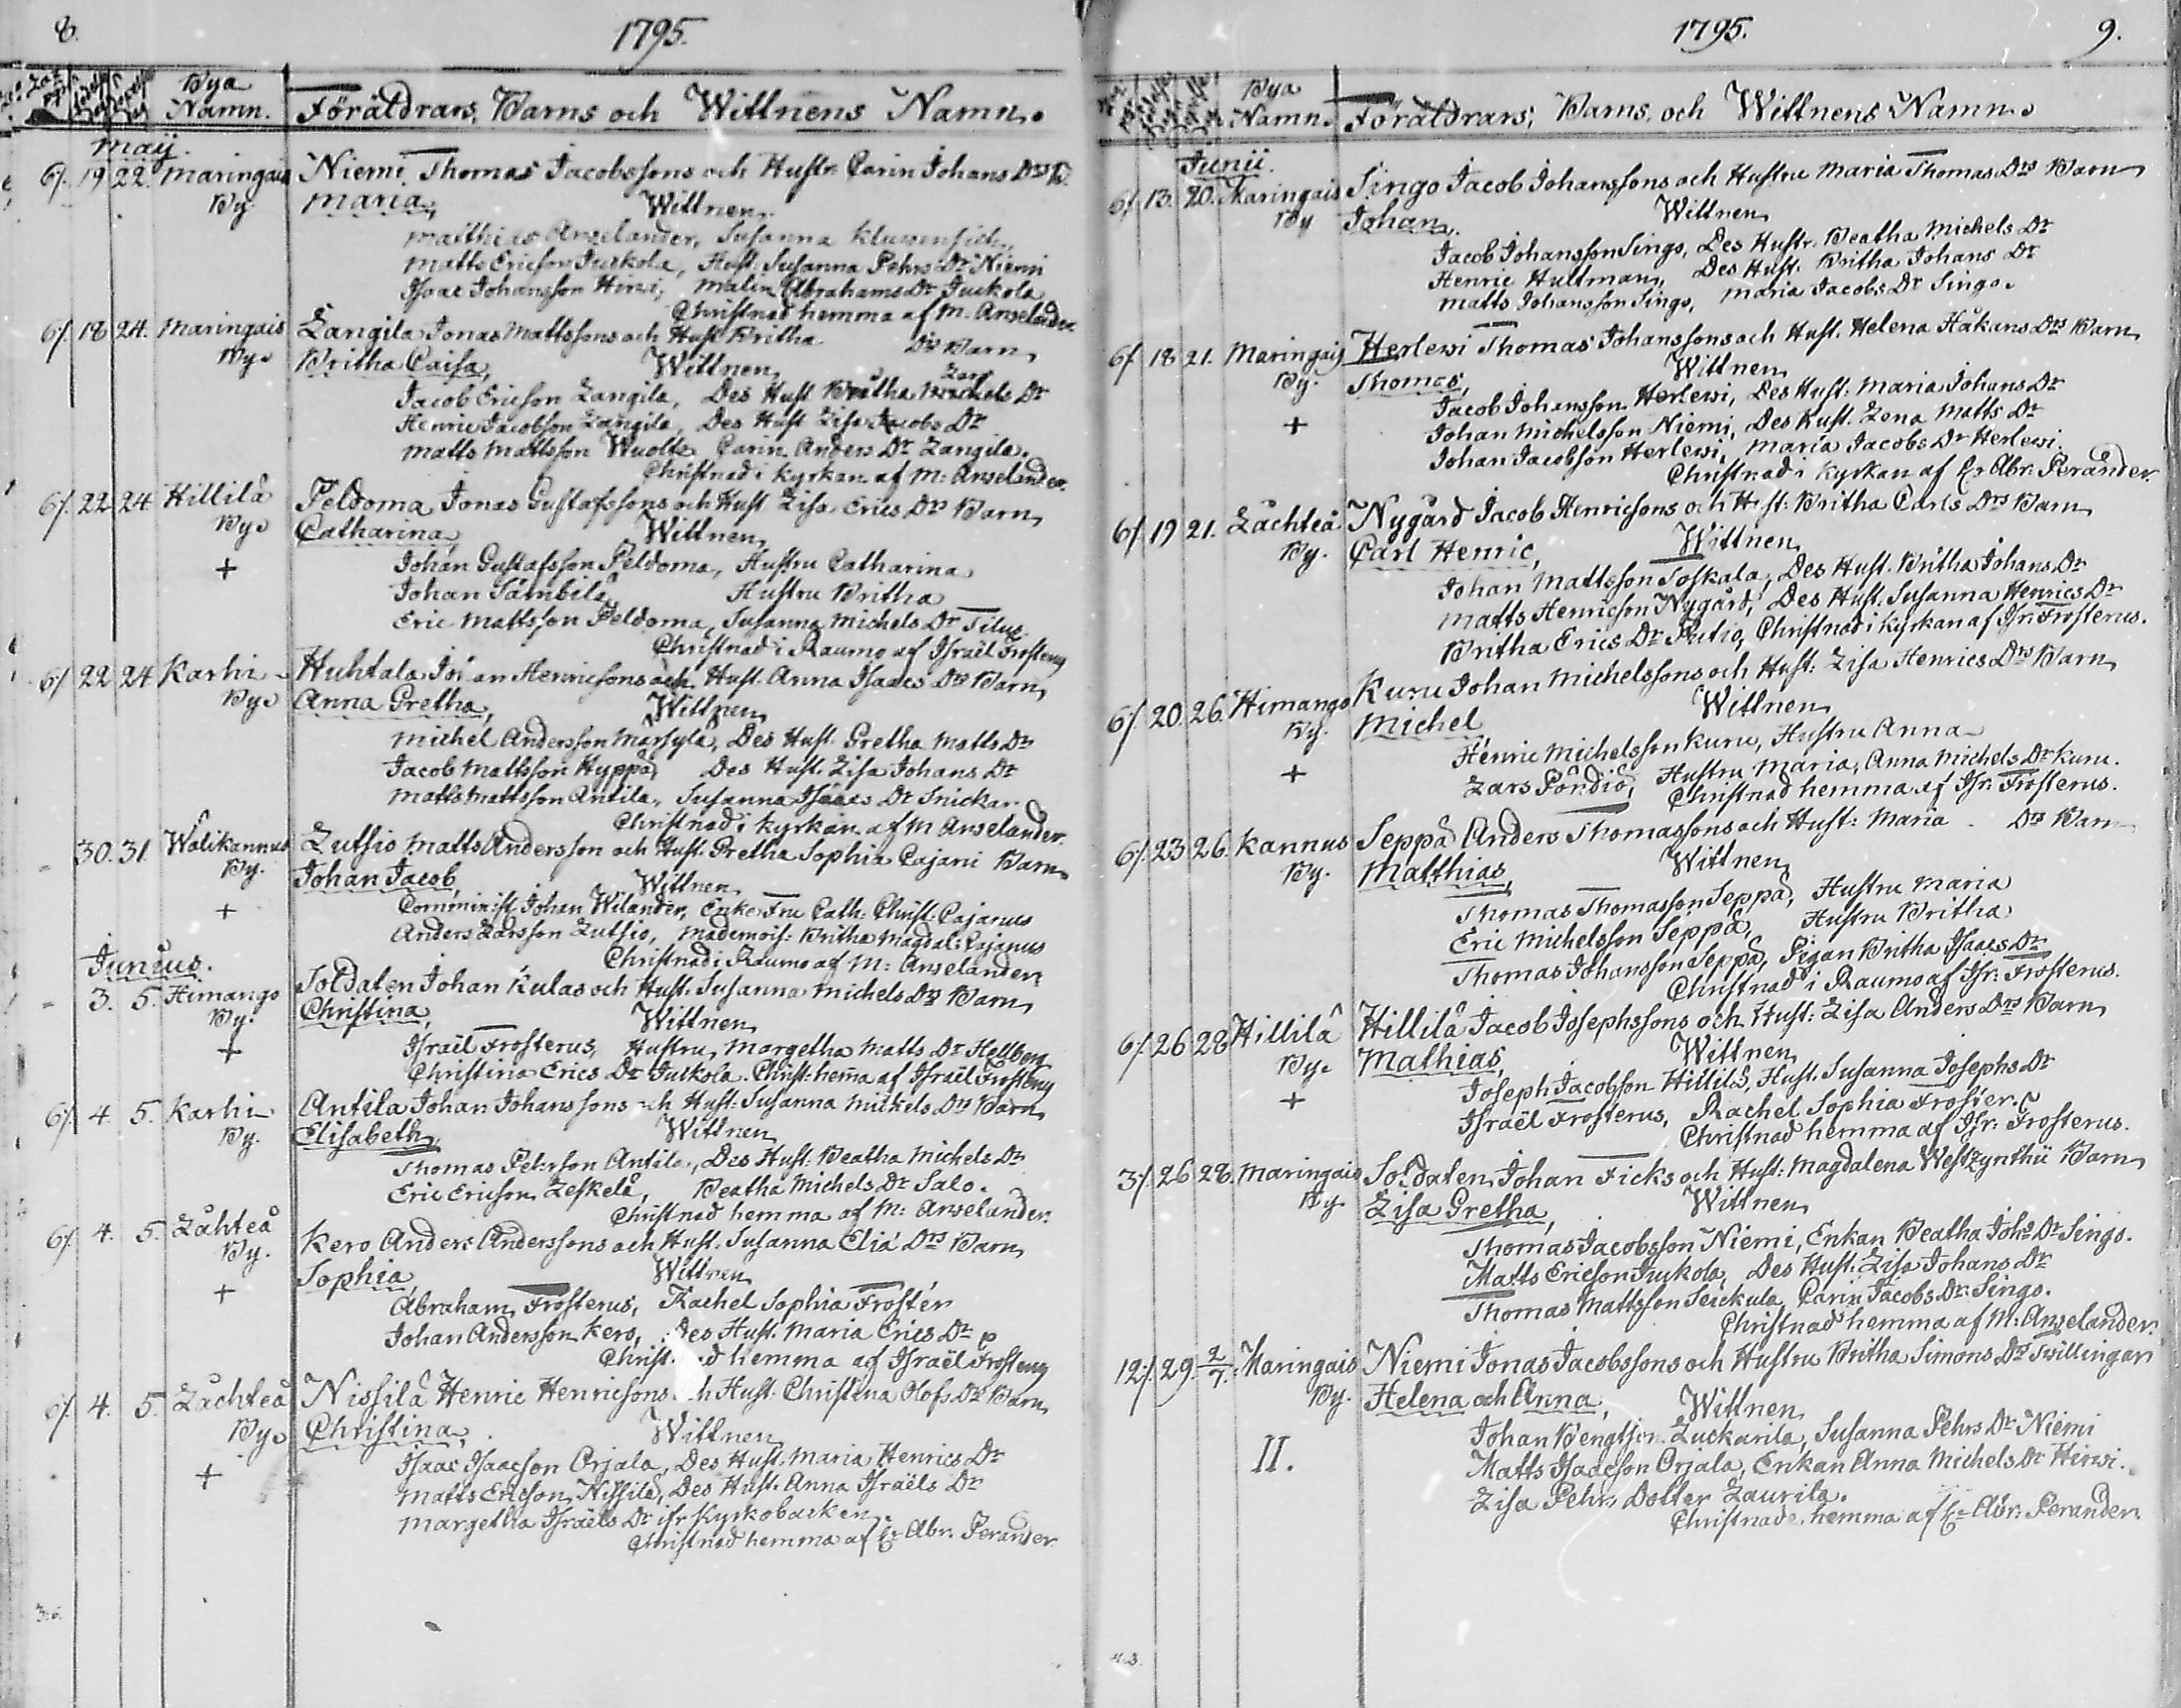 8.
1795.
Bya
Namn.
Föräldrars, Barns och Wittnens Namn.
Maij.
6/. 19 22. Maringais Niemi Thomas Jacobssons och Hustr. Carin Johans Drs B.
By Maria, Wittnen
Matthias Anselander, Susanna
Matts Ericson Juckola, Hust. Susanna Pehrs Dr Niemi
Isaac Johansson Hirvi, Malin Abrahams Dr Juckola
Christnad hemma af M. Anselander
6/. 18 24. Maringais Langila Jonas Mattssons och Hust Britha Drs Barn
By. Britha Caisa, Wittnen
Jacob Ericson Langila, Des Hust Britha Dr
Henric Jacobson Langila, Des Hust Lisa Jacobs Dr
Matts Mattsson Wuolte Carin Anders Dr Langila.
Christnad i Kyrkan af M: Anselander.
6/. 22 24 Hillilä Peldoma Jonas Gustafssons och Hust Lisa Erics Drs Barn
By. Catharina, Wittnen
+ Johan Gustafsson Peldoma, Hustru Catharina
Johan Sämbilä, Hustru Britha
Eric Mattsson Peldoma, Susanna Michels Dr Tilus
Christnad i Raumo af Israël Frosterus
6/. 22 24 Karhi Huhtala Johan Henricsons och Hust. Anna Isaacs Drs Barn
By. Anna Gretha, Wittnen
Michel Andersson Marsylä, Des Hust. Gretha Matts Dr
Jacob Mattsson Hyppä, Des Hust. Lisa Johans Dr
Matts Mattsson Antila, Susanna Isaacs Dr Snickar
Christnad i Kyrkan af M Anselander.
30. 31. Wälikannus Lutsio Matts Andersson och Hust. Gretha Sophia Cajani Barn
By. Johan Jacob, Wittnen
+ Johan Wilander, Enke Fru Cath: Christ. Cajanus
Anders Larsson Lutsio, Mademois: Britha Magdal: Cajanus
Christnad i Raumo af M: Anselander
Junius.
3. 5. Himango Soldaten Johan Kulas och Hust. Susanna Michels Drs Barn
By. Christina, Wittnen
+ Israël Frosterus, Hustru Margetha Matts Dr Hellberg
Christina Erics Dr Juckola. Christ: hema af Israël Frosterus
6/. 4. 5. Karhi Antila Johan Johanssons och Hust: Susanna Mickels Drs Barn
By. Elisabeth, Wittnen
Thomas Pehrson Antila, Des Hust: Beatha Michels Dr
Eric Ericson Leskelä, Beatha Michels Dr Salo.
Christnad hemma af M: Anselander.
6/. 4. 5. Låhteå Kero Anders Anderssons och Hust. Susanna Eliæ Drs Barn
By. Sophia, Wittnen
+ Abraham Frosterus, Rachel Sophia Froster
Johan Andersson Kero, Des Hust. Maria Erics Dr
Christnad hemma af Israël Frosterus
6/. 4. 5. Låchteå Nissilä Henric Henricsons och Hust. Christina Olofs Drs Barn
By. Christina, Wittnen
+ Isaac Isaacson Orjala, Des Hust. Maria Henrics Dr
Matts Ericson Nissilä, Des Hust. Anna Israëls Dr
Margetha Israëls Dr ifr Kyrkobacken.
Christnad hemma af Abr. Perander
1795.
9.
Bya
Namn.
Föräldrars, Barns, och Wittnens Namn.
Junii.
6/. 13. 20. Maringais Singo Jacob Johanssons och Hustru Maria Thomas Drs Barn
By Johan, Wittnen
Jacob Johansson Singo, Des Hustr. Beatha Michels Dr
Henric Hultman, Des Hust. Britha Johans Dr
Matts Johansson Singo, Maria Jacobs Dr Singo.
6/. 18 21. Maringais Herlewi Thomas Johanssons och Hust. Helena Håkans Drs Barn
By. Thomas, Wittnen
Jacob Johansson Herlewi, Des Hust: Maria Johans Dr
+ Johan Michelsson Niemi, Des Hust. Lena Matts Dr
Johan Jacobson Herlewi, Maria Jacobs Dr Herlewi.
Christnad i Kyrkan af Abr. Perander.
6/. 19 21. Låchteå Nygård Jacob Henricsons och Hust: Britha Carls Drs Barn
By. Carl Henric, Wittnen
Johan Mattsson Toskala, Des Hust. Britha Johans Dr
Matts Henricson Nygård, Des Hust. Susanna Henrics Dr
Britha Erics Dr Putio, Christnad i Kyrkan af Isr: Frosterus.
6/. 20. 26. Himango Kuru Johan Michelssons och Hust: Lisa Henrics Drs Barn
By. Michel, Wittnen
Henric Michelsson Kuru, Hustru Anna
+ Lars Pöndiö, Hustru Maria, Anna Michels Dr Kuru.
Christnad hemma af Isr: Frosterus.
6/. 23 26. Kannus Seppä Anders Thomassons och Hust: Maria Drs Barn
By. Matthias, Wittnen
Thomas Thomasson Seppä, Hustru Maria
Eric Michelsson Seppä, Hustru Britha
Thomas Johansson Seppä, Pigan Britha Isaacs Dr
Christnad i Raumo af Isr: Frosterus.
6/. 26 28 Hillilä Hillilä Jacob Josephssons och Hust: Lisa Anders Drs Barn
By. Mathias, Wittnen
+ Joseph Jacobson Hillilä, Hust. Susanna Josephs Dr
Israël Frosterus, Rachel Sophia Froster.
Christnad hemma af Isr: Frosterus.
3/. 26 28. Maringais Soldaten Johan Ficks och Hust: Magdalena Westzynthii Barn
By. Lisa Gretha, Wittnen
Thomas Jacobsson Niemi, Enkan Beatha Johs Dr Singo.
Matts Ericson Juckola, Des Hust: Lisa Johans Dr
Thomas Mattsson Seickula, Carin Jacobs Dr. Singo.
Christnad hemma af M: Anselander.
12/. 29. 2/7. Maringais Niemi Jonas Jacobssons och Hustru Britha Simons Drs Twillingar
By. Helena och Anna, Wittnen
Johan Bengtson Luckarila, Susanna Pehrs Dr. Niemi
II. Matts Isaacson Orjala, Enkan Anna Michels Dr Hirwi.
Lisa Pehrs Dotter Laurila.
Christnade hemma af Abr: Perander.